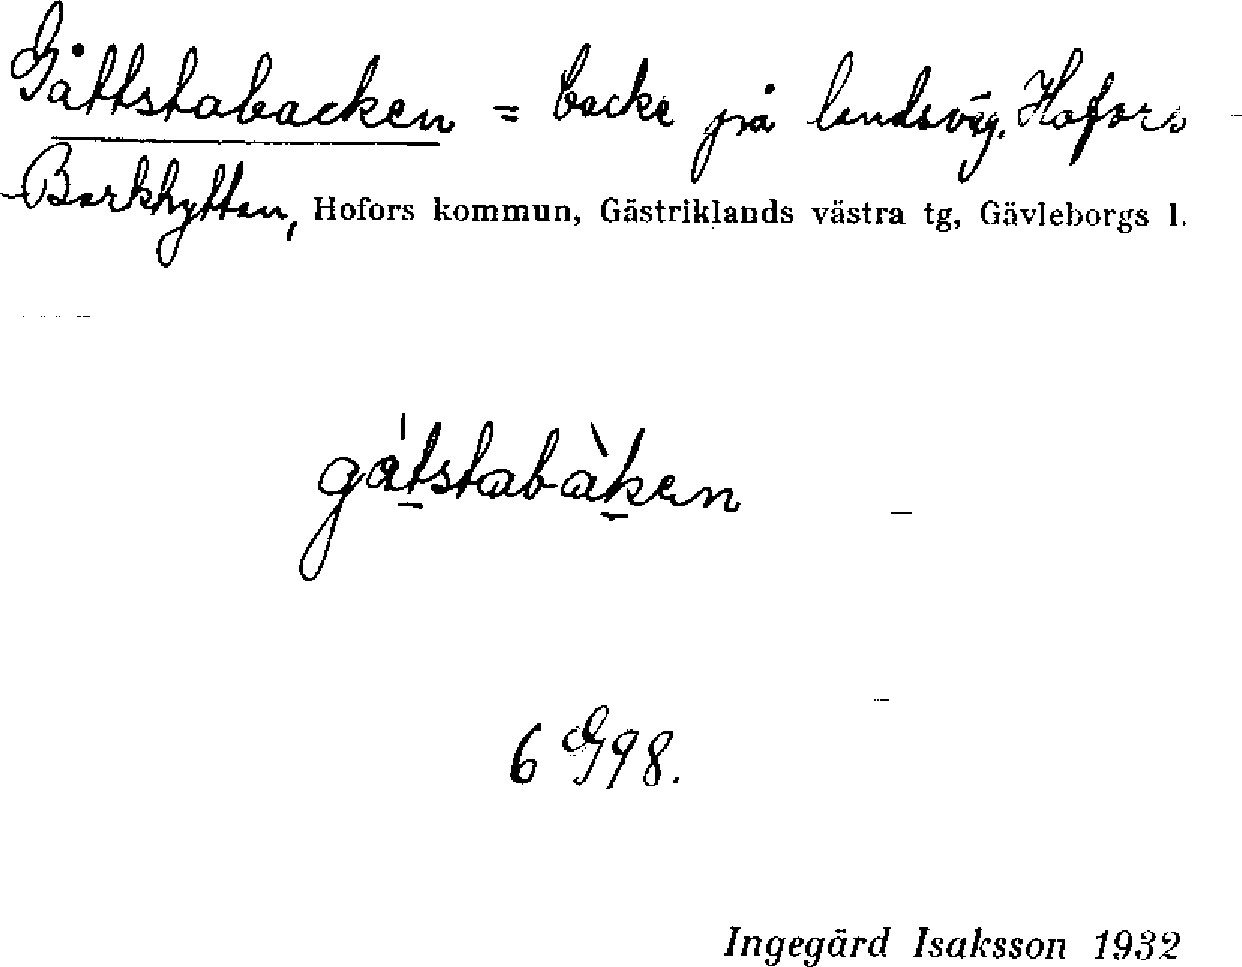 Gåttstabacken = backe på landsväg. Hofors
- Barkhyttan, Hofors kommun, Gästriklands västra tg, Gävleborgs l.
gátstabàken
6 G 98.
Ingegärd Isaksson 1932